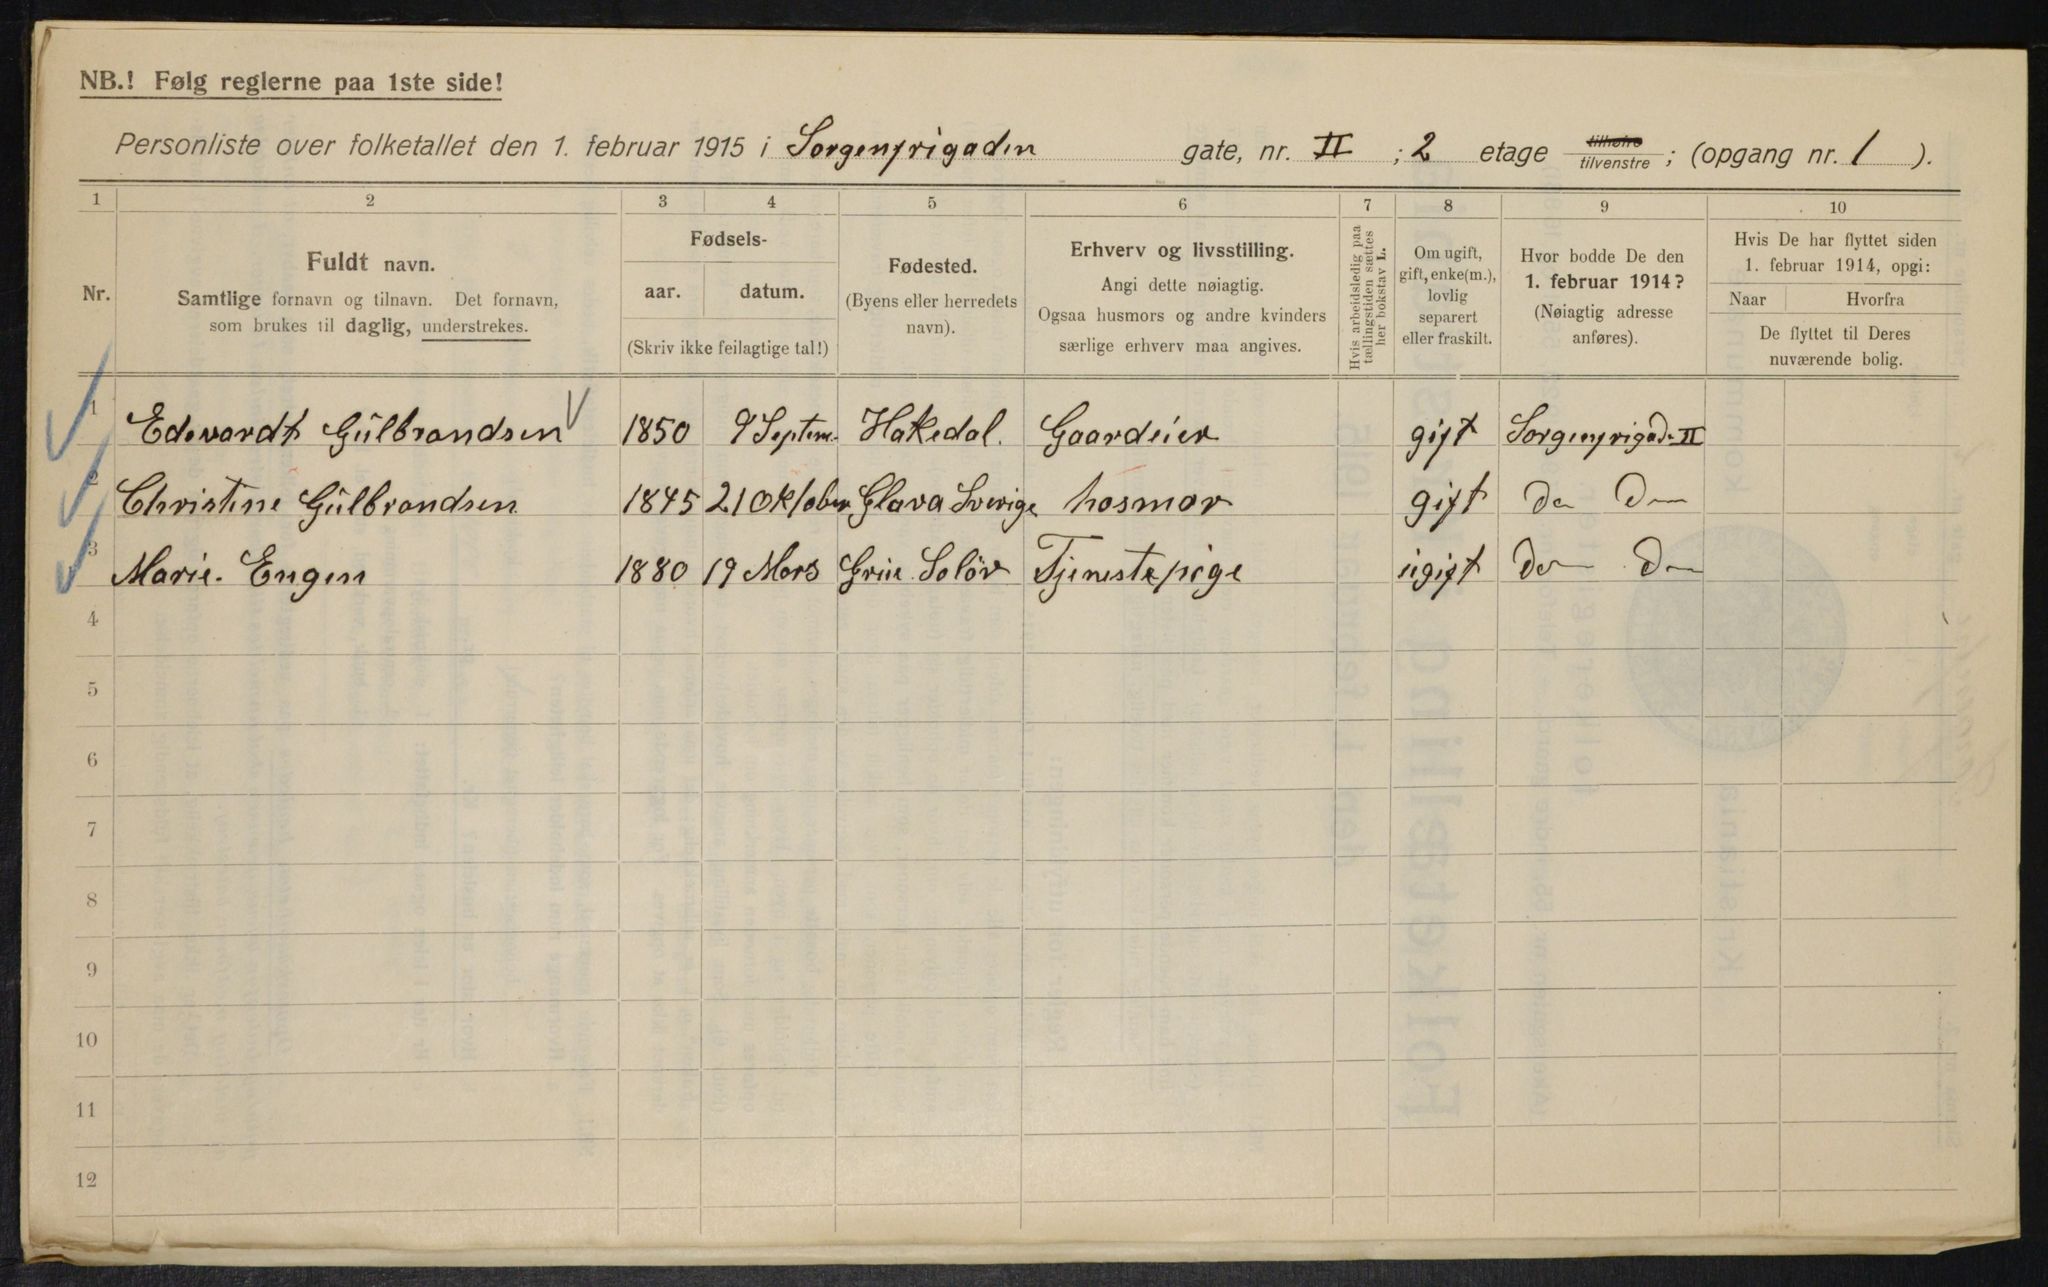 NB.! Følg reglerne paa 1ste side!
Personliste over folketallet den 1. februar 1915 i Sorgenfrigaden gate, nr. II ; 2 etage tilhøire tilvenstre ; (opgang nr. 1 ).
1 2 3 4 5 6 7 8 9 10
Nr.
Fuldt navn.
Samtlige fornavn og tilnavn. Det fornavn,
som brukes til daglig, understrekes.
Fødsels-
aar. datum.
(Skriv ikke feilagtige tal!)
Fødested.
(Byens eller herredets
navn).
Erhverv og livsstilling.
Angi dette nøiagtig.
Ogsaa husmors og andre kvinders
særlige erhverv maa angives.
Hvis arbeidsledig paa
tællingstiden sættes
her bokstav L.
Om ugift,
gift, enke(m.),
lovlig
separert
eller fraskilt.
Hvor bodde De den
1. februar 1914?
(Nøiagtig adresse
anføres).
Hvis De har flyttet siden
1. februar 1914, opgi:
Naar Hvorfra
De flyttet til Deres
nuværende bolig.
1 Edvardt Gülbrandsen 1850 9 Septem. Hakedal. Gaardeier gift Sorgenfrigad. II
2 Christine Gülbrandsen 1845 21 Oktober Glava Sverige hosmor gift Do Do
3 Marie. Engen 1880 19 Mars Grue Solör Tjenestepige ügift Do Do
4
5
6
7
8
9
10
11
12